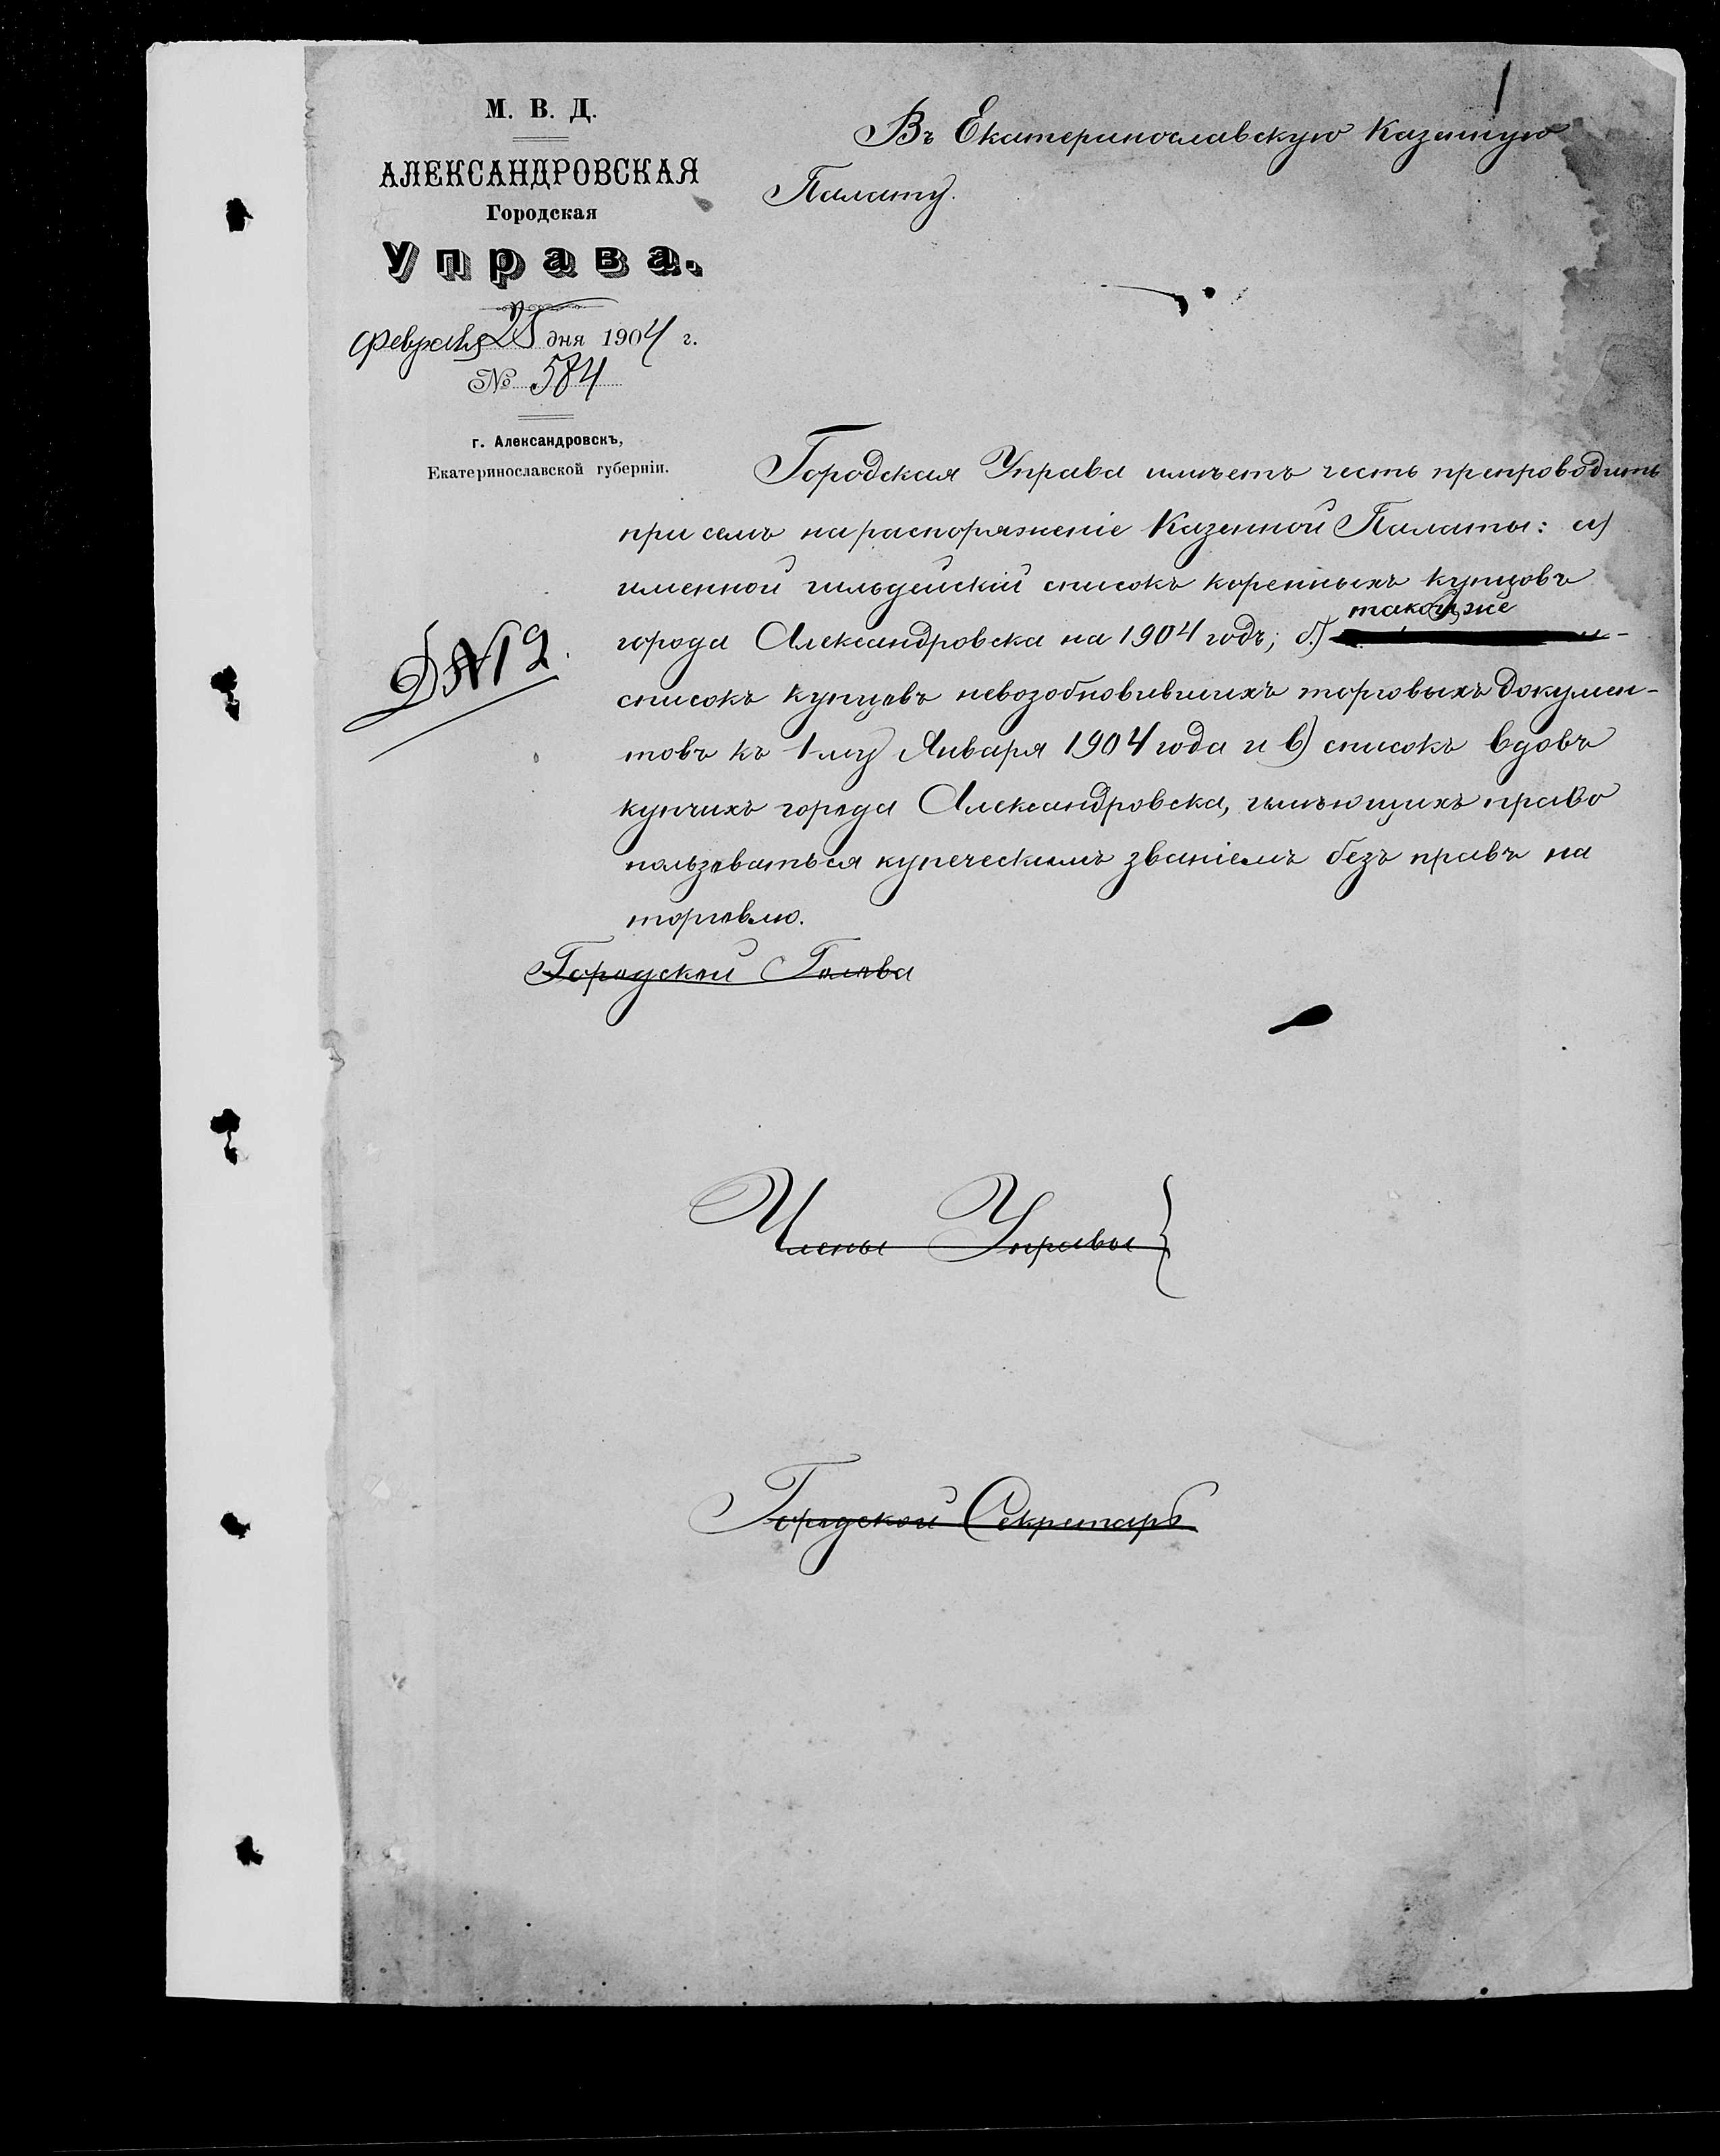 1
М. В. Д.
АЛЕКСАНДРОВСКАЯ
Городская
Управа.
Февраля 25 дня 1904 г.
№ 584
г. Александровскъ,
Екатеринославской губерніи.
Въ Екатеринославскую Казенную
Палату.
Городская Управа имѣетъ честь препроводить
при семъ на распоряженіе Казенной Палаты: а)
именной гильдейскій списокъ коренныхъ купцовъ
такой же
города Александровска на 1904 годъ; б)
списокъ купцовъ невозобновившихъ торговыхъ докумен-
товъ къ 1-му Января 1904 года и в) списокъ вдовъ
купчихъ города Александровска, имѣющихъ право
пользоваться купеческимъ званіемъ безъ правъ на
торговлю.
Городской Голова
Члены Управы
Городской Секретарь